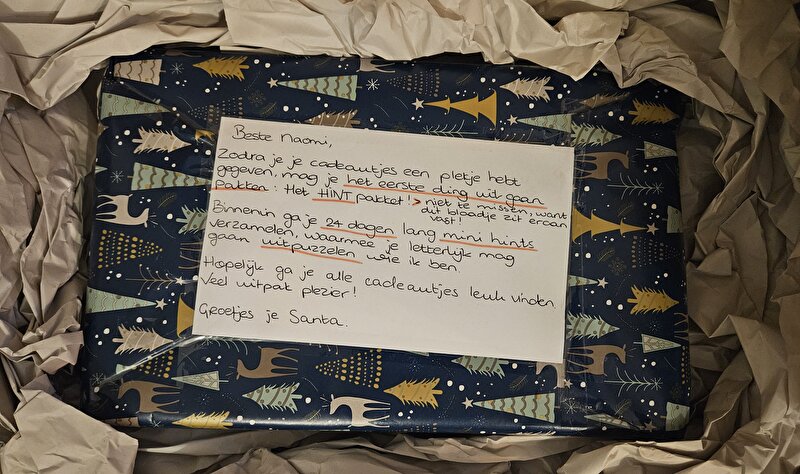 Beste Naomi,
Zodra je je cadeautjes een pletje hebt
gegeven, mag je het eerste ding uit gaan
pakken: Het HINT pakket! > niet te missen, want
dit blaadje zit eraan
vast!
Binnenin ga je 24 dagen lang mini hints
verzamelen, waarmee je letterlijk mag
gaan uitpuzzelen wie ik ben.
Hopelijk ga je alle cadeautjes leuk vinden.
Veel uitpak plezier!
Groetjes je Santa.